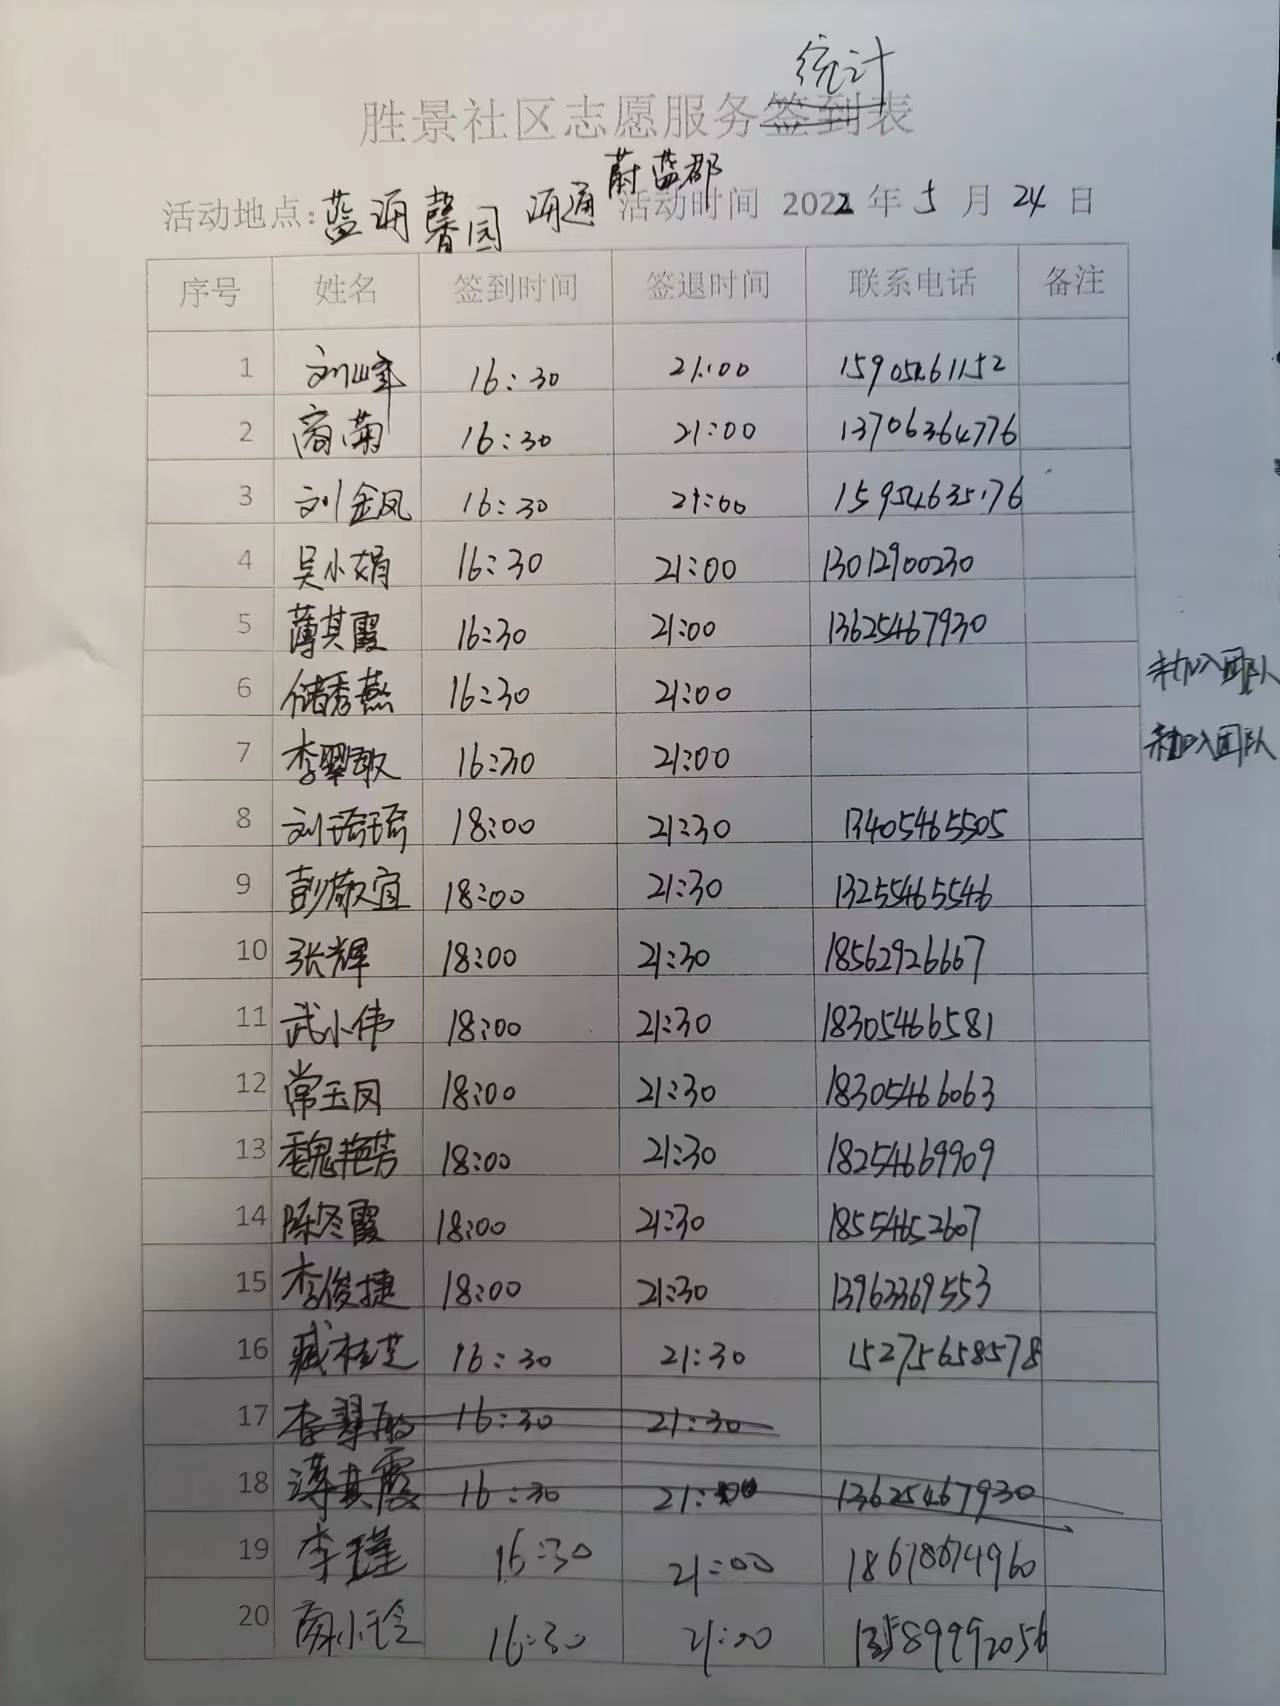 统计
胜景社区志愿服务签到表
蔚蓝郡
活动地点:蓝海馨园 海通 活动时间 2022 年 5 月 24 日
序号 姓名 签到时间 签退时间 联系电话 备注
1 刘峰 16:30 21:00 15905461152
2 商菊 16:30 21:00 13706364776
3 刘金凤 16:30 21:00 15954635176
4 吴小娟 16:30 21:00 13012900230
5 薄其霞 16:30 21:00 13625467930
6 储秀燕 16:30 21:00 未加入团队
7 李翠敏 16:30 21:00 未加入团队
8 刘琦琦 18:00 21:30 13405465505
9 彭敬宜 18:00 21:30 13255465546
10 张辉 18:00 21:30 18562926667
11 武小伟 18:00 21:30 18305466581
12 常玉凤 18:00 21:30 18305466063
13 魏艳芳 18:00 21:30 18254669909
14 陈冬霞 18:00 21:30 18554652607
15 李俊捷 18:00 21:30 13963369553
16 臧桂芝 16:30 21:30 15275658578
17 李翠敏 16:30 21:30
18 薄其霞 16:30 21:00 13625467930
19 李瑾 16:30 21:00 18678674960
20 商小玲 16:30 21:00 13589992056